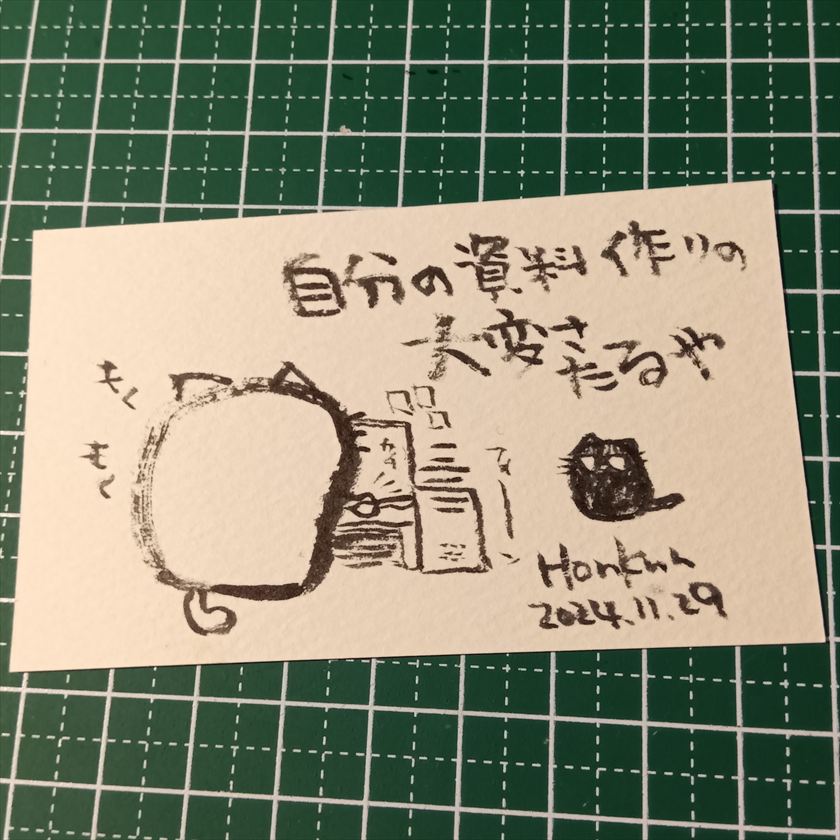 自分の資料作りの
大変さたるや
もく
もく
Honkun
2024.11.29